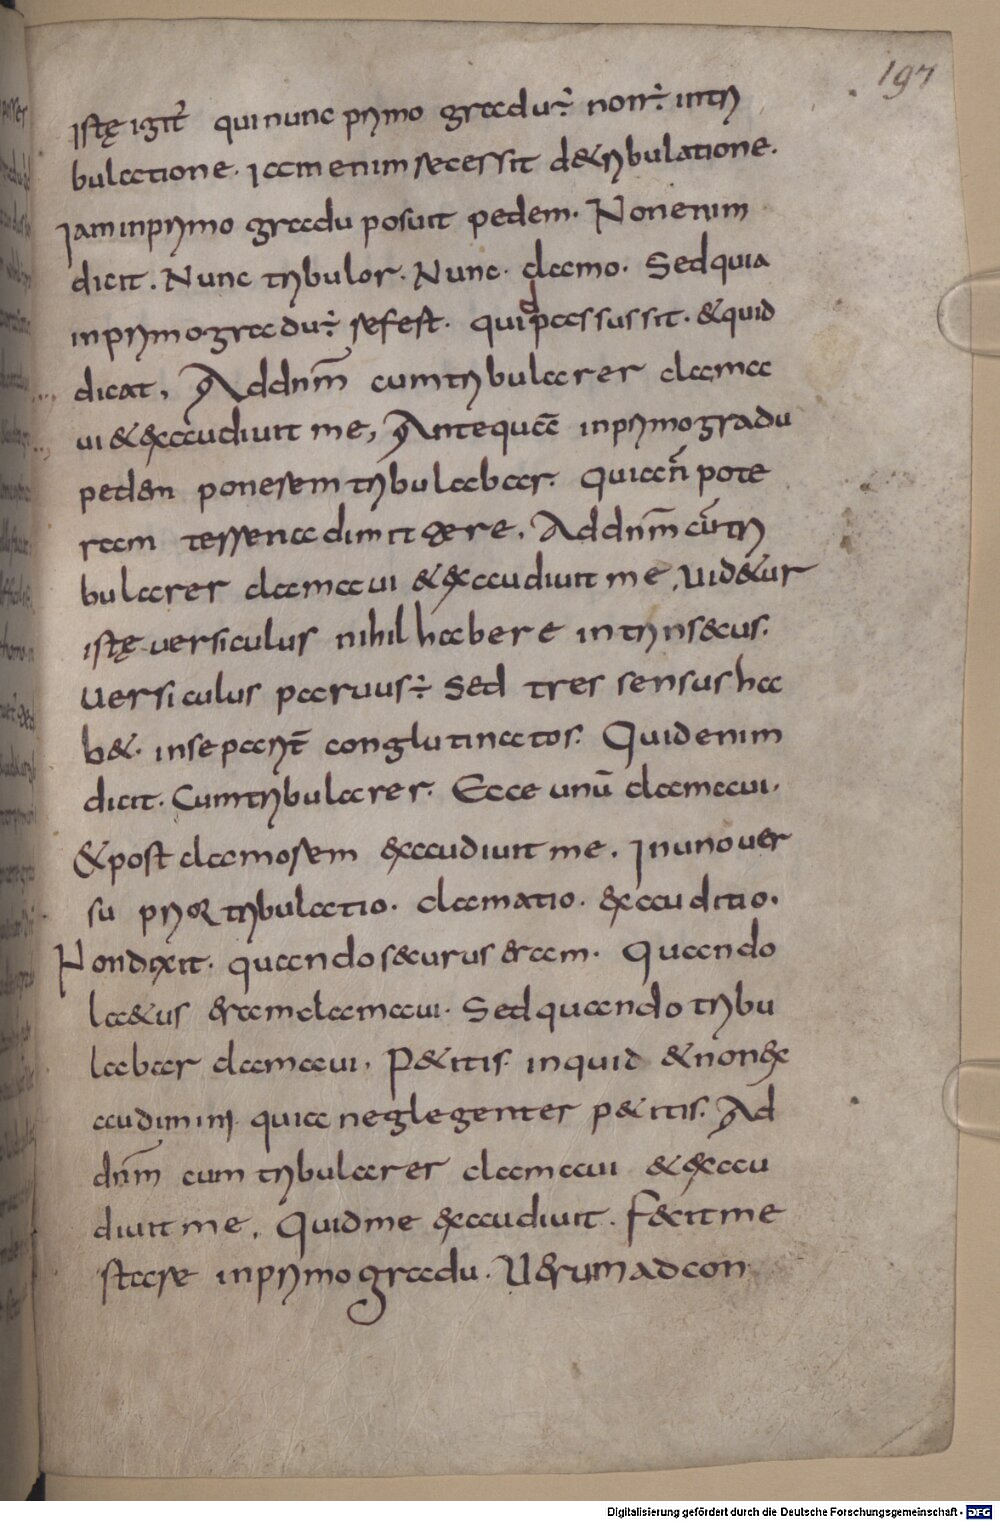 197
istę igit̄ qui nunc primo gradu ÷ non ÷ in tri
bulatione. Iam enim secessit de tribulatione.
Iam in primo gradu posuit pedem. Non enim
dicit. Nunc tribulor. Nunc. clamo. Sed quia
in primo gradu ÷ sefest. qui passus sit. & quid
dicat, Ad dn̄m cum tribularer clama
ui & exaudiuit me, Antequā in primo gradu
pedem ponerem tribulabar. Quia n̄ pote
ram terrena dimittere. Ad dn̄m cū tri
bularer clamaui & exaudiuit me, uidetur
istę uersiculus nihil habere intrinsecus.
uersiculus paruus ÷ Sed tres sensus ha
bet. inseparit̄ conglutinatos. Quid enim
dicit. Cum tribularer. Ecce unū clamaui.
& post clamorem exaudiuit me. In uno uer
su prior tribulatio. clamatio. exauditio.
Non dixit. quando securus eram. Quando
laetus eram clamaui. Sed quando tribu
labar clamaui. Petitis. inquid & non ex
audimini. quia neglegenter petitis. Ad
dn̄m cum tribularer clamaui & exau
diuit me. Quid me exaudiuit. Fecit me
stare in primo gradu. Uerum ad con
Digitalisierung gefördert durch die Deutsche Forschungsgemeinschaft - DFG